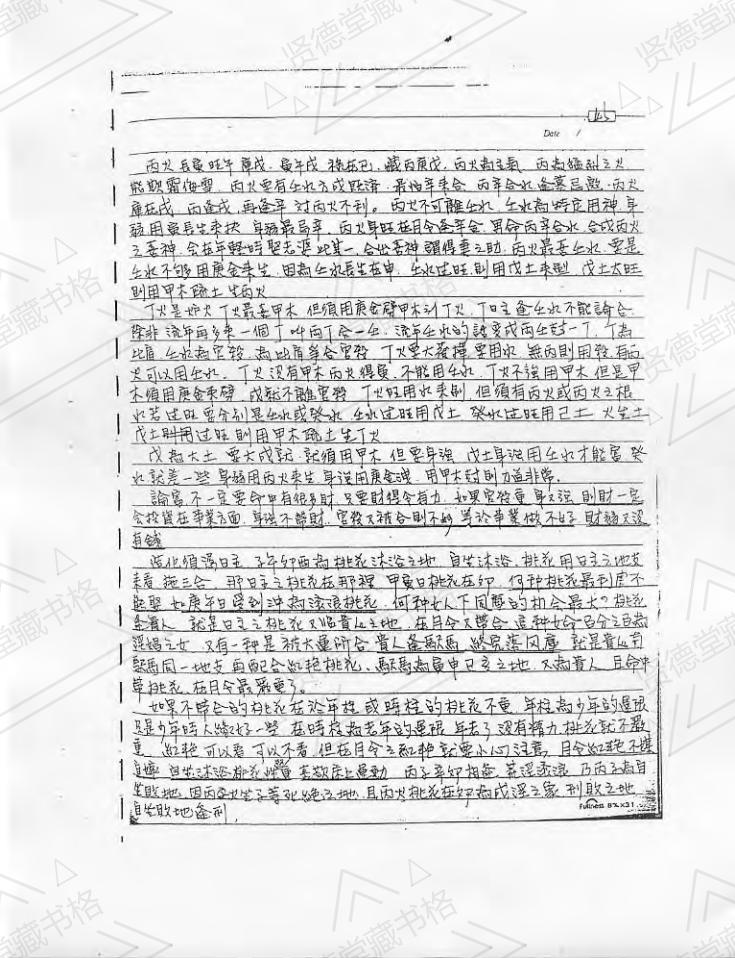 贤德堂藏书格
Date /
丙火長寅旺午庫戌．寅午戌．祿在巳．藏丙庚戊．丙火為主氣．丙為猛烈之火
能欺霜侮雪．丙火要有壬水方成既濟．最怕辛來合．丙辛合水逢 忌 ．丙火
庫在戌．丙逢戌．再逢辛．對丙火不利。丙火不可離壬水．壬水為特定用神．身
弱用寅長生來扶．身弱最忌辛．丙火身旺在月令逢辛合．男命丙辛合水合成丙火
之喜神．会在年輕時娶老婆此其一．合出喜神．得妻之助．丙火最喜壬水．要是
壬水不够用庚金來生．因為壬水長生在申．壬水过旺．則用戊土來制．戊土太旺
則用甲木疏土生丙火
丁火是 火．丁火最喜甲木．但須用庚金劈甲木引丁火．丁日主逢壬水不能論合．
除非流年再多來一個丁叫兩丁合一壬．流年壬水的話変成兩壬 一丁．丁為
比肩．壬水為官殺．為比肩爭合官殺．丁火要大發揮要用水．無丙則用殺．有丙
火可以用壬水．丁火没有甲木丙火得寅．不能用壬水．丁火不強用甲木．但是甲
木須用庚金來劈．成就不離官殺．丁火旺用水來制．但須有丙火或丙火之根
水若过旺要分别是壬水或癸水．壬水过旺用戊土．癸水过旺用己土．火生土
戊土 用过旺．則用甲木疏土生丁火
戊為大土．要大成就．就須用甲木．但要身強．戊土身強用壬水才能富．癸
水就差一些．身弱用丙火來生．身強用庚金洩．用甲木 則 非常。
論富．不一定要命中有很多財．只要財得令有力．如果官殺重身又強．則財一定
会投資在事業方面．身強不 財．官殺又被合則不好．等於事業做不好．財弱又没
有錢
須過日主．子午卯酉為桃花沐浴之地．自坐沐浴．桃花用日主之地支
來看．拖三合．那日主之桃花在那裡．甲寅日桃花在卯．何种桃花最利害不
能娶．如庚午日受到沖為滚滚桃花．何种女人下同 的机会最大？桃花
貴人．就是日主之桃花又临貴人之地．在月令又 合．這种女命百分之百為
淫娼之女．又有一种是被大運所合．貴人逢馱馬．終究落风塵．就是貴人与
馬同一地支．再配合红艳桃花．馬為寅申巳亥之地．又為貴人．且命中
桃花．在月令最嚴重了。
如果不 合的桃花在於年柱．或時柱的桃花不重．年柱為少年的運限
只是少年時人 一些．在時柱為老年的運限．年老了．没有精力．桃花就不嚴
重．红艳可以看可以不看．但在月令之红艳就要小心注意．月令红艳不
自坐沐浴桃花性重喜歡床上運動．丙子辛卯相逢．荒淫滚浪．乃丙子為自
坐敗地．因丙火坐子 死絕之地．且丙火桃花在卯為成淫之象．刑敗之地
自坐敗地逢刑．
Fullness